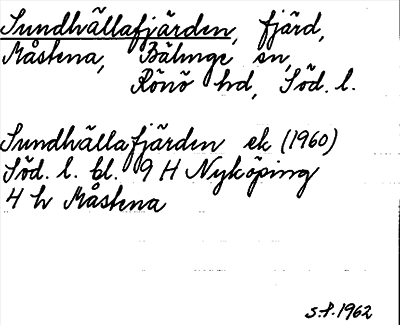 Sundhällafjärden, fjärd,
Måstena, Bälinge sn,
Rönö hd, Söd. l.
Sundhällafjärden ek (1960)
Söd. l. bl. 9 H Nyköping
4 h Måstena
S.P. 1962